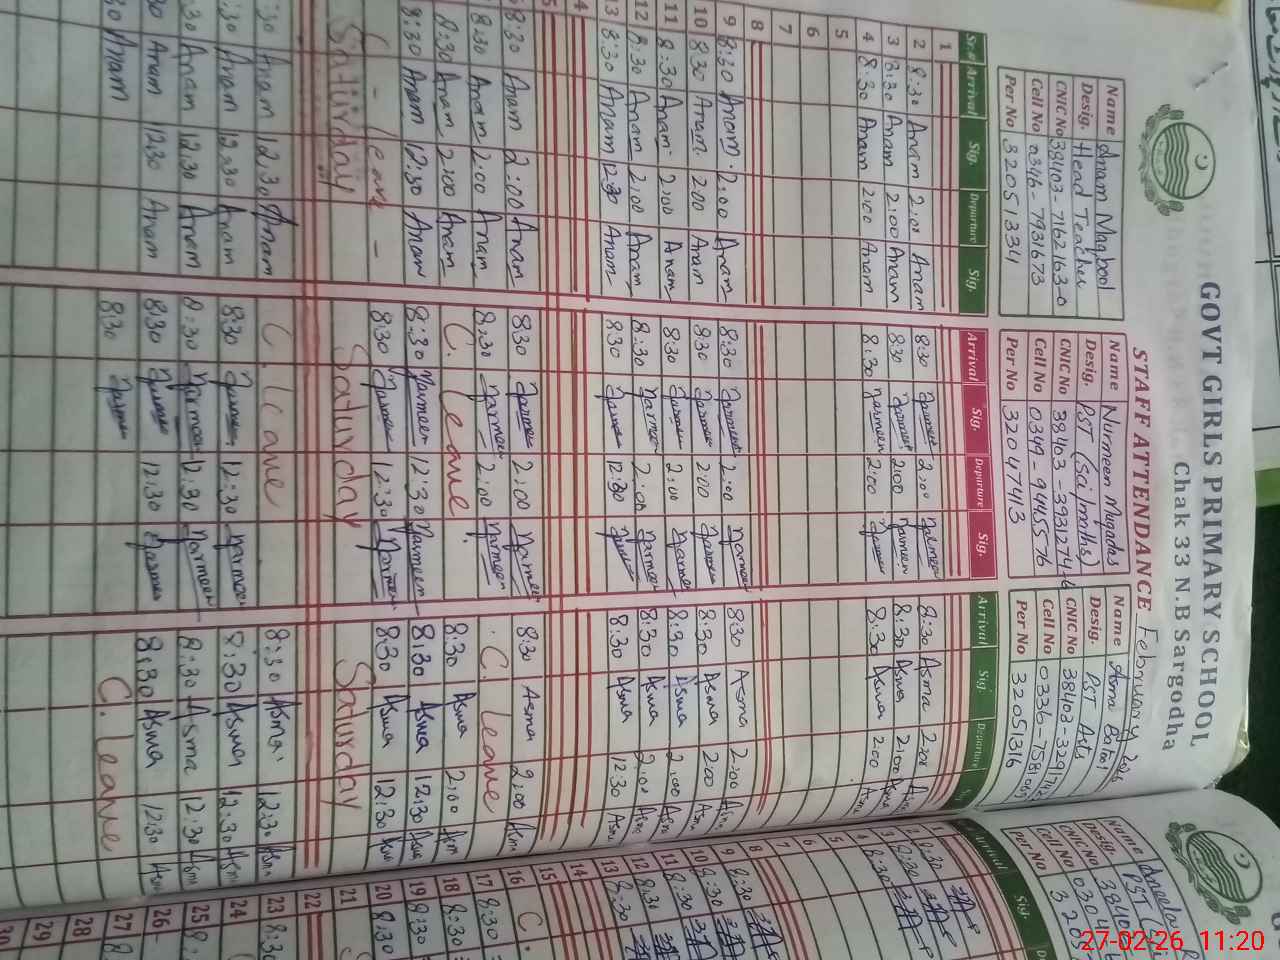 GOVT GIRLS PRIMARY SCHOOL
Chak 33 N.B Sargodha
STAFF ATTENDANCE February
Name Anam Maqbool
Desig. Head Teacher
CNIC No 38403-7162163-0
Cell No 0346-7931673
Per No 32051334
Name Nurmeen Muqadas
Desig. PST (Sci/maths)
CNIC No
Cell No 0349-9445576
Per No 32047413
Name Asma
Desig. PST Arts
CNIC No
Cell No
Per No 32051316
Sr.# Arrival Sig. Departure Sig. Arrival Sig. Departure Sig. Arrival Sig. Departure
1
2 8:30 Anam 2:00 Anam 8:30 Narmeen 2:00 Narmeen 8:30 Asma 2:00
3 8:30 Anam 2:00 Anam 8:30 Narmeen 2:00 Narmeen 8:30 Asma 2:00 Asma
4 8:30 Anam 2:00 Anam 8:30 Narmeen 2:00 Narmeen 8:30 Asma 2:00 Asma
5
6
7
8
9 8:30 Anam 2:00 Anam 8:30 Narmeen 2:00 Narmeen 8:30 Asma 2:00 Asma
10 8:30 Anam 2:00 Anam 8:30 Narmeen 2:00 Narmeen 8:30 Asma 2:00 Asma
11 8:30 Anam 2:00 Anam 8:30 Narmeen 2:00 Narmeen 8:30 Asma 2:00 Asma
12 8:30 Anam 2:00 Anam 8:30 Narmeen 2:00 Narmeen 8:30 Asma 2:00 Asma
13 8:30 Anam 12:30 Anam 8:30 Narmeen 12:30 Narmeen 8:30 Asma 12:30 Asma
8:30 Anam 2:00 Anam 8:30 Narmeen 2:00 Narmeen 8:30 Asma 2:00 Asma
8:30 Anam 2:00 Anam 8:30 Narmeen 2:00 Narmeen C. leave
8:30 Anam 2:00 Anam C. leave 8:30 Asma 2:00
8:30 Anam 12:30 Anam 8:30 Narmeen 12:30 Narmeen 8:30 Asma 12:30
leave - 8:30 Narmeen 12:30 Narmeen 8:30 Asma 12:30
Saturday Saturday Saturday
:30 Anam 12:30 Anam C. leave 8:30 Asma 12:30 Asma
:30 Anam 12:30 Anam 8:30 Narmeen 12:30 Narmeen 8:30 Asma 12:30
30 Anam 12:30 Anam 8:30 Narmeen 12:30 Narmeen 8:30 Asma 12:30
30 Anam 12:30 Anam 8:30 Narmeen 12:30 Narmeen 8:30 Asma 12:30 Asma
30 Anam 8:30 Narmeen C. leave
Name
Desig. PST
CNIC No
Cell No
Per No
Arrival Sig.
1
2 8:30
3 8:30
4 8:30
5
6
7
8
9 8:30
10 8:30
11 8:30
12 8:30
13 8:30
14
15
16 C.
17 8:30
18 8:30
19 8:30
20 8:30
21
22
23 8:30
24
25
26
27
28
29
30
27-02-26 11:20